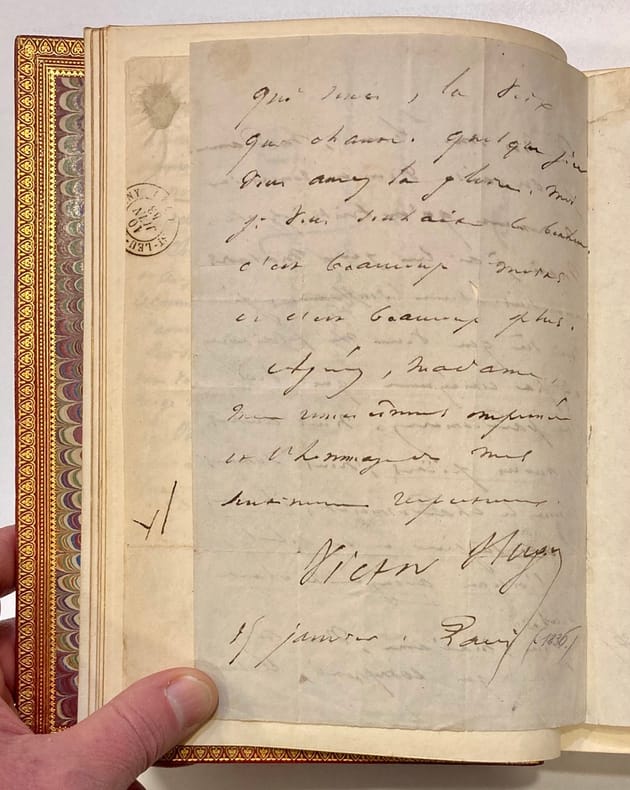 qui rêve, la voix
qui chante. quelque jour
vous aurez la gloire. moi
je vous souhaite le bonheur
c'est beaucoup moins
et c'est beaucoup plus.
Agréez, madame,
mes remerciements empressés
et l'hommage de mes
sentiments respectueux.
Victor Hugo
15 janvier. Paris (1836.)
ST-LEU
10
JUIN